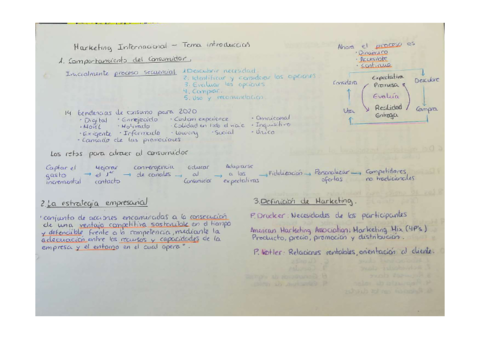 Marketing Internacional - Tema introducción
1. Comportamiento del consumidor.
Inicialmente proceso secuencial
1. Descubrir necesidad
2. Identificar y considerar las opciones
3. Evaluar las opciones
4. Compra
5. Uso y recomendación
Ahora el proceso es
· Dinámico
· Accesible
· Continuo
Considera
Expectativa
Promesa
Descubre
Evalúa
Usa
Realidad
Entrega
Compra
14 tendencias de consumo para 2020
· Digital · Comprometido · Custom experience · Omnicanal
· Móvil · Calidad en todo el valor · Inquisitivo
· Exigente · Informado · Social · Único
· Cansado de las promociones
Los retos para atraer al consumidor
Captar el gasto incremental → 1er contacto → convergencia de canales → Educar al consumidor → Adaptarse a las expectativas → Fidelización → Personalizar ofertas → Competidores no tradicionales
2. La estrategia empresarial
"conjunto de acciones encaminadas a la consecución
de una ventaja competitiva sostenible en el tiempo
y defendible frente a la competencia, mediante la
adecuación entre los recursos y capacidades de la
empresa y el entorno en el cual opera"
3. Definición de Marketing.
P. Drucker Necesidades de los participantes
American Marketing Association: Marketing Mix (4P's)
Producto, precio, promoción y distribución.
P. Kotler: Relaciones rentables, orientación al cliente.